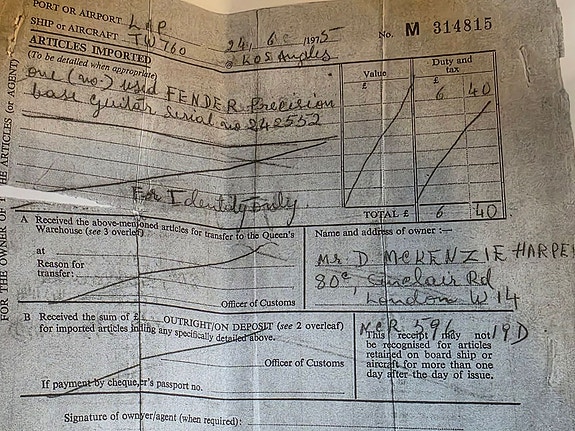 PORT OR AIRPORT L A P
SHIP or AIRCRAFT TW 760 24 6 1975 No. M 314815
ARTICLES IMPORTED @ Los Angles
(To be detailed when appropriate)
one (no.) used FENDER Precision
base guitar Serial no 242552
For Identity only
Value Duty and tax
£ £
6 40
TOTAL £ 6 40
FOR THE OWNER OF THE ARTICLES (or AGENT)
A Received the above-mentioned articles for transfer to the Queen's
Warehouse (see 3 overleaf)
at
Reason for
transfer:
Officer of Customs
Name and address of owner :—
Mr D MCKENZIE HARPER
80c, Sinclair Rd
London W14
B Received the sum of £ OUTRIGHT/ON DEPOSIT (see 2 overleaf)
for imported articles including any specifically detailed above.
Officer of Customs
If payment by cheque, er's passport no.
NCR 596 19D
This receipt may not
be recognised for articles
retained on board ship or
aircraft for more than one
day after the day of issue.
Signature of owner/agent (when required):